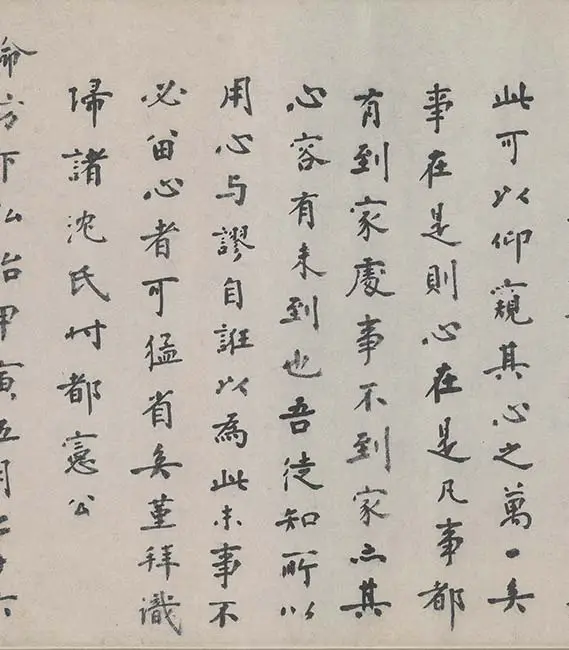 此可以仰窺其心之萬一矣
事在是則心在是凡事都
有到家處事不到家亦其
心容有未到也吾徒知所以
用心与謬自誑以為此末事不
必留心者可猛省矣堇拜識
歸諸沈氏时都憲公
命方下弘治甲寅五月六